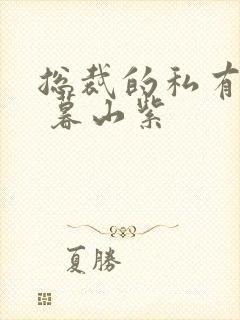 总裁的私有
暮山紫
夏勝